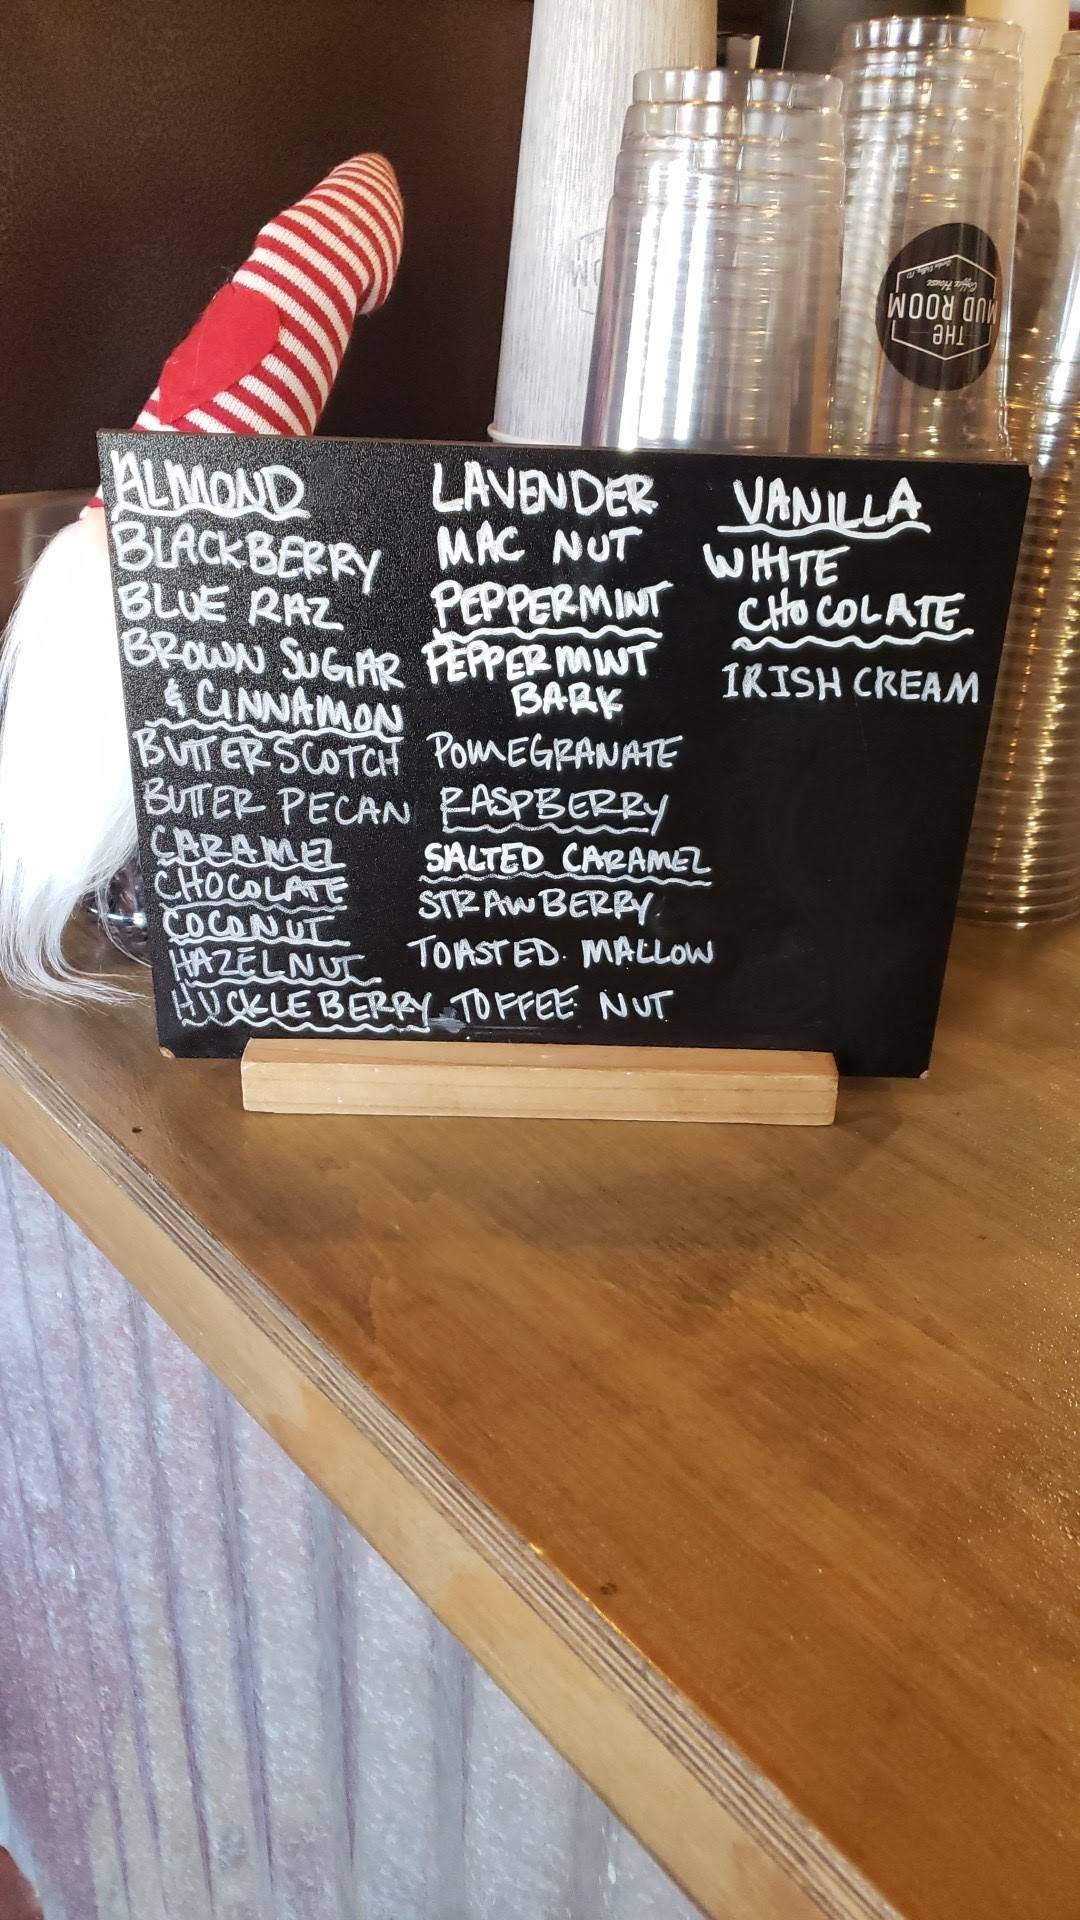 ALMOND
BLACKBERRY
BLUE RAZ
BROWN SUGAR
& CINNAMON
BUTTERSCOTCH
BUTTER PECAN
CARAMEL
CHOCOLATE
COCONUT
HAZELNUT
HUCKLEBERRY
LAVENDER
MAC NUT
PEPPERMINT
PEPPERMINT
BARK
POMEGRANATE
RASPBERRY
SALTED CARAMEL
STRAWBERRY
TOASTED MALLOW
TOFFEE NUT
VANILLA
WHITE
CHOCOLATE
IRISH CREAM
THE
MUD ROOM
Coffee House